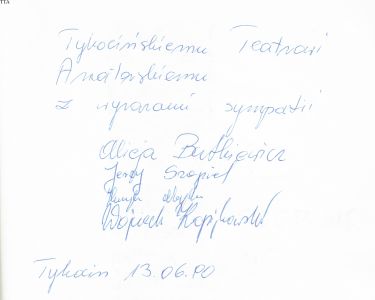 Tykocińskiemu Teatrowi
Amatorskiemu
z wyrazami sympatii
Alicja Butkiewicz
Jerzy Szapiel
Wojciech Kopijkowski
Tykocin 13.06.90